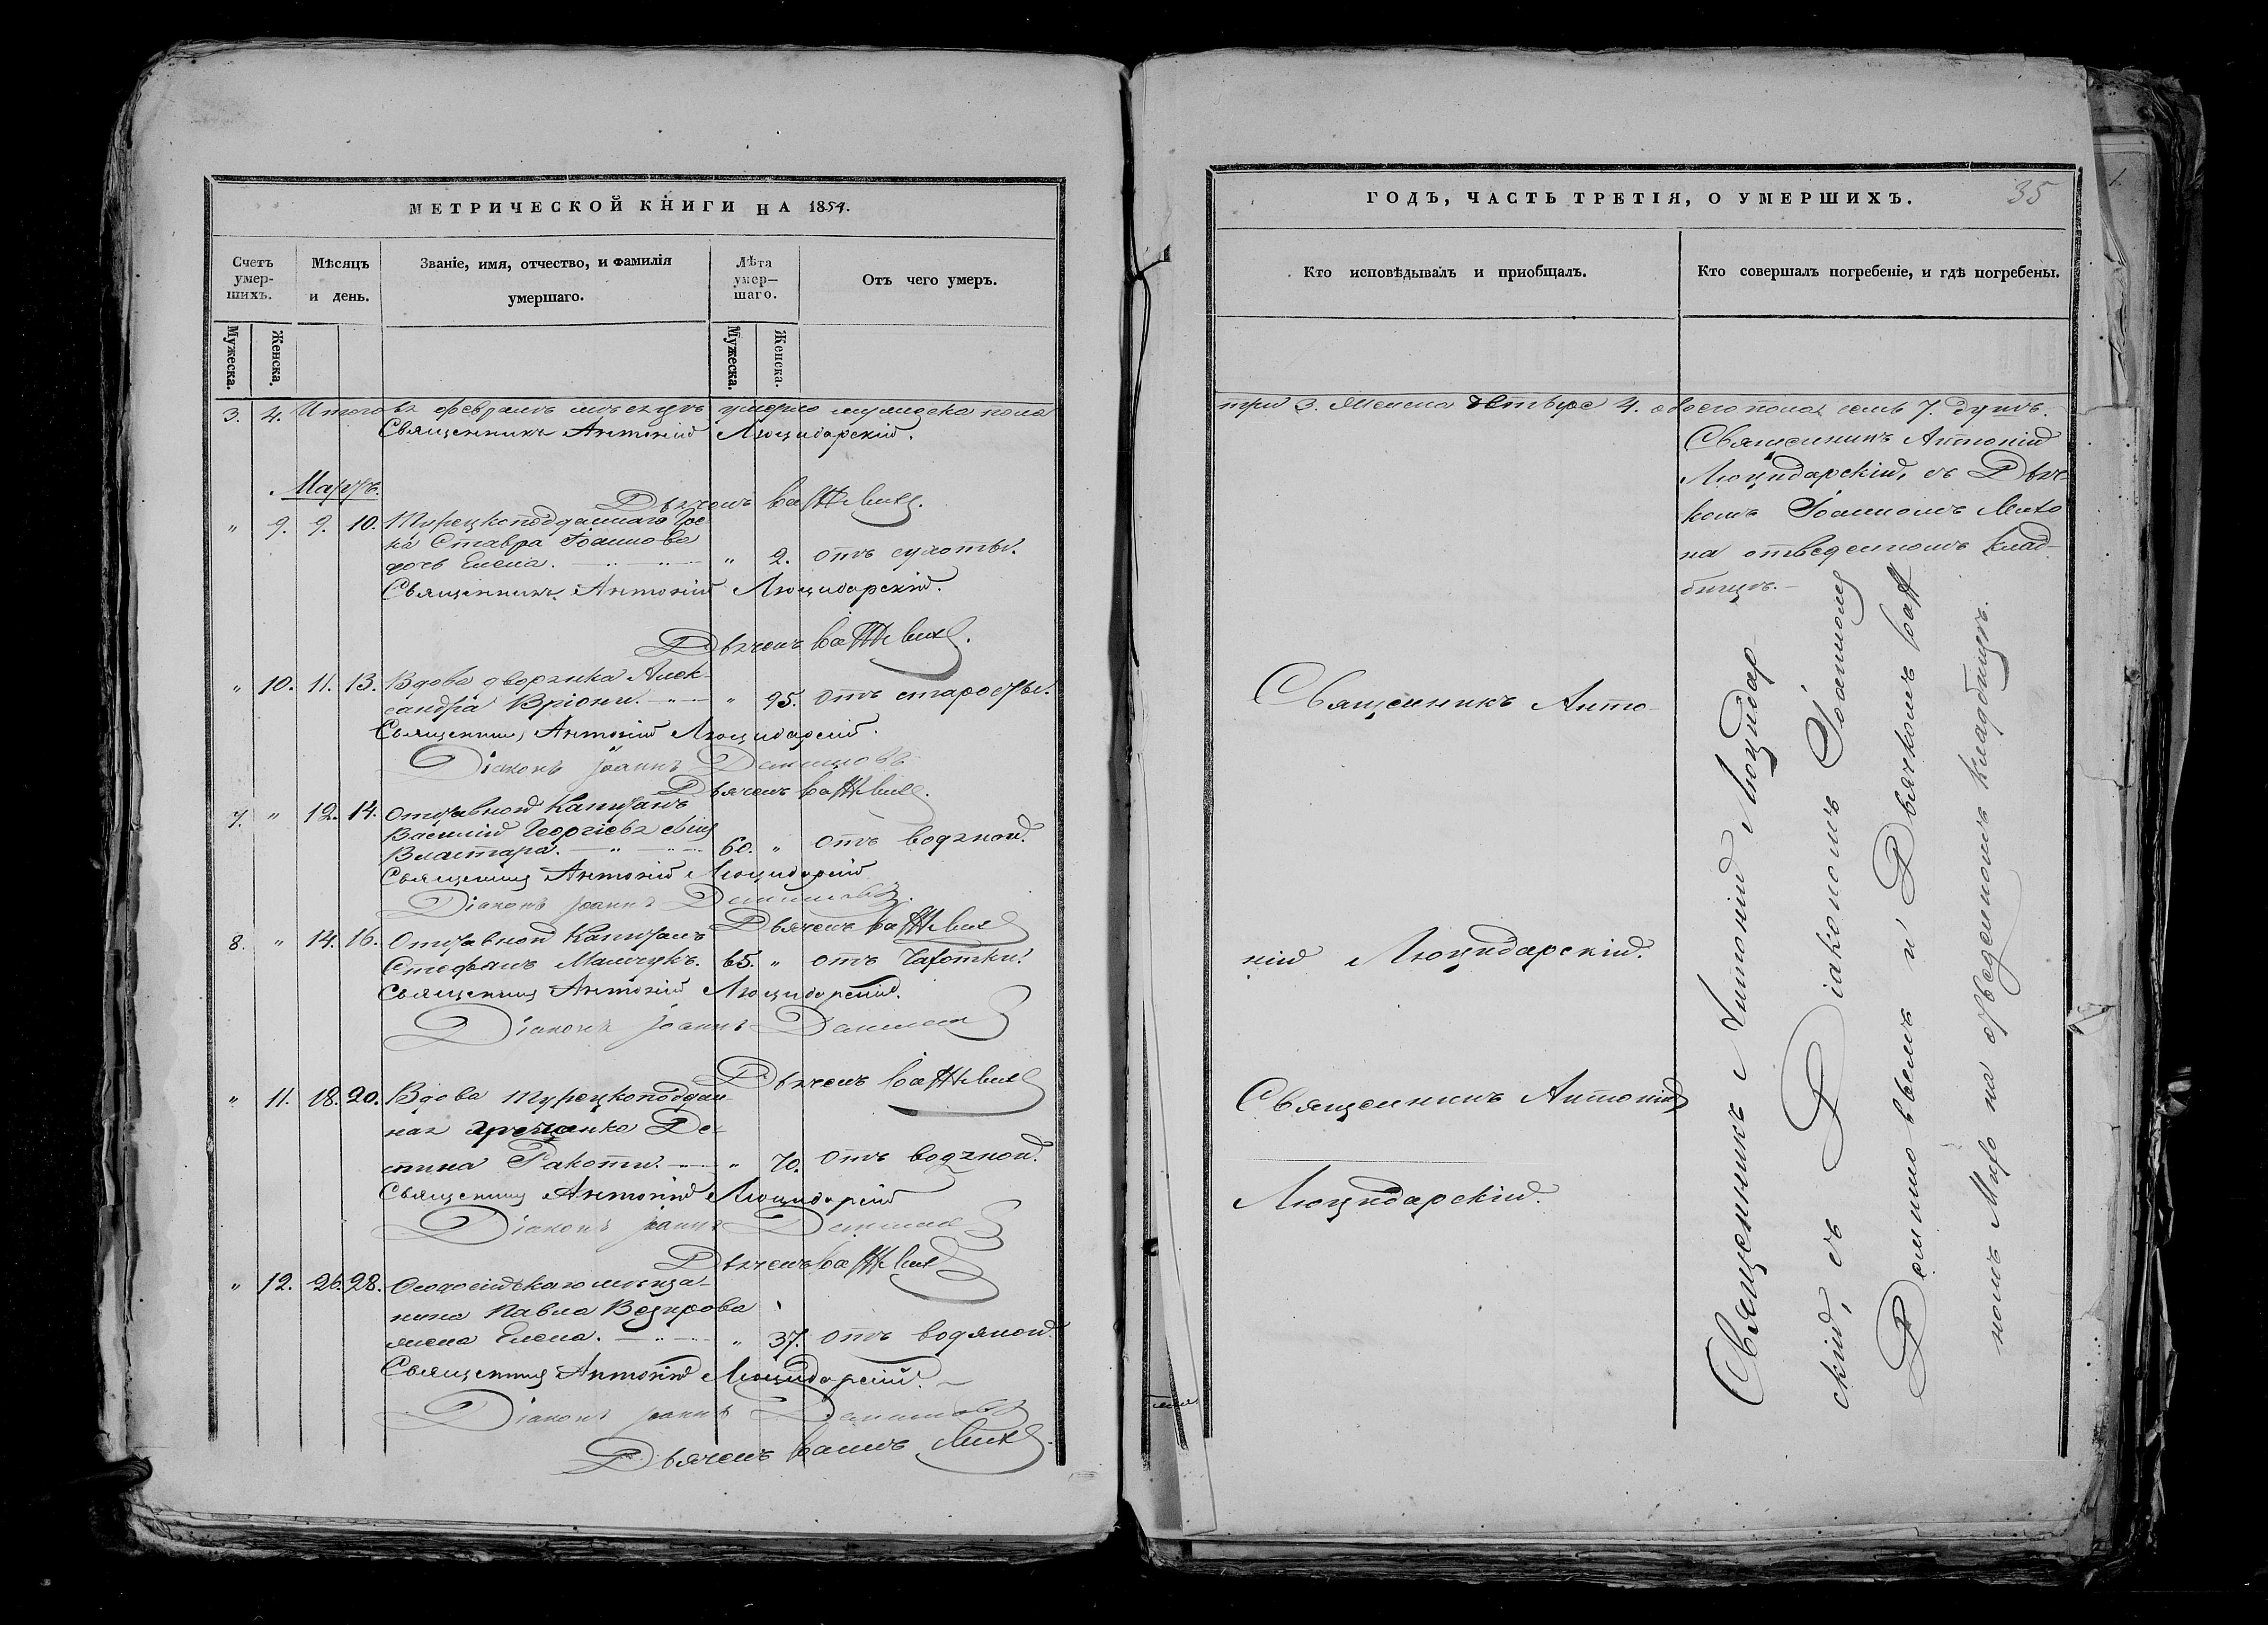 МЕТРИЧЕСКОЙ КНИГИ НА 1854.
Счетъ умер-шихъ.
Мѣсяцъ и день.
Званіе, имя, отчество, и фамилія умершаго.
Лѣта умер-шаго.
Отъ чего умеръ.
Мужеска.
Женска.
Мужеска.
Женска.
3. 4. Итого въ февралѣ мѣсяцѣ умерло мужеска пола
Священникъ Антоній Люцидарскій.
Мартъ.
Дьячекъ
" 9. 9. 10. Турецкоподданнаго Гре-
ка Ставра Іоаннова
дочь Елена. " 2. отъ сухоты.
Священникъ Антоній Люцидарскій.
Дьячекъ
" 10. 11. 13. Вдова дворянка Алек-
сандра Вріони. " 95. отъ старости.
Священникъ Антоній Люцидарскій.
Діаконъ Іоаннъ
Дьячекъ
7. " 12. 14. Отставной Капитанъ
Василій Георгіевъ сынъ
Властара. 60. " отъ водяной.
Священникъ Антоній Люцидарскій
Діаконъ Іоаннъ
Дьячекъ
8. " 14. 16. Отставной Капитанъ
Стефанъ 65. " отъ чахотки.
Священникъ Антоній Люцидарскій.
Діаконъ Іоаннъ
Дьячекъ
" 11. 18. 20. Вдова Турецкоподдан-
ная гречанка Де-
спина Ракоти. " 70. отъ водяной.
Священникъ Антоній Люцидарскій
Діаконъ Іоаннъ
Дьячекъ
" 12. 26. 28. Феодосійскаго мѣща-
нина Павла
жена Елена. " 37. отъ водяной.
Священникъ Антоній Люцидарскій.
Діаконъ Іоаннъ
Дьячекъ
ГОДЪ, ЧАСТЬ ТРЕТІЯ, О УМЕРШИХЪ.
35
Кто исповѣдывалъ и приобщалъ.
Кто совершалъ погребеніе, и гдѣ погребены.
три 3. женска четыре 4. обоего пола семь 7. душъ.
Священникъ Антоній
Люцидарскій, съ Дьяч-
комъ Іоанномъ
на отведенномъ клад-
бищѣ.
Священникъ Анто-
ній Люцидарскій.
Священникъ Антоній
Люцидарскій.
Священникъ Антоній Люцидар-
скій, съ Діакономъ Іоанномъ
и Дьячкомъ
на отведенномъ кладбищѣ.